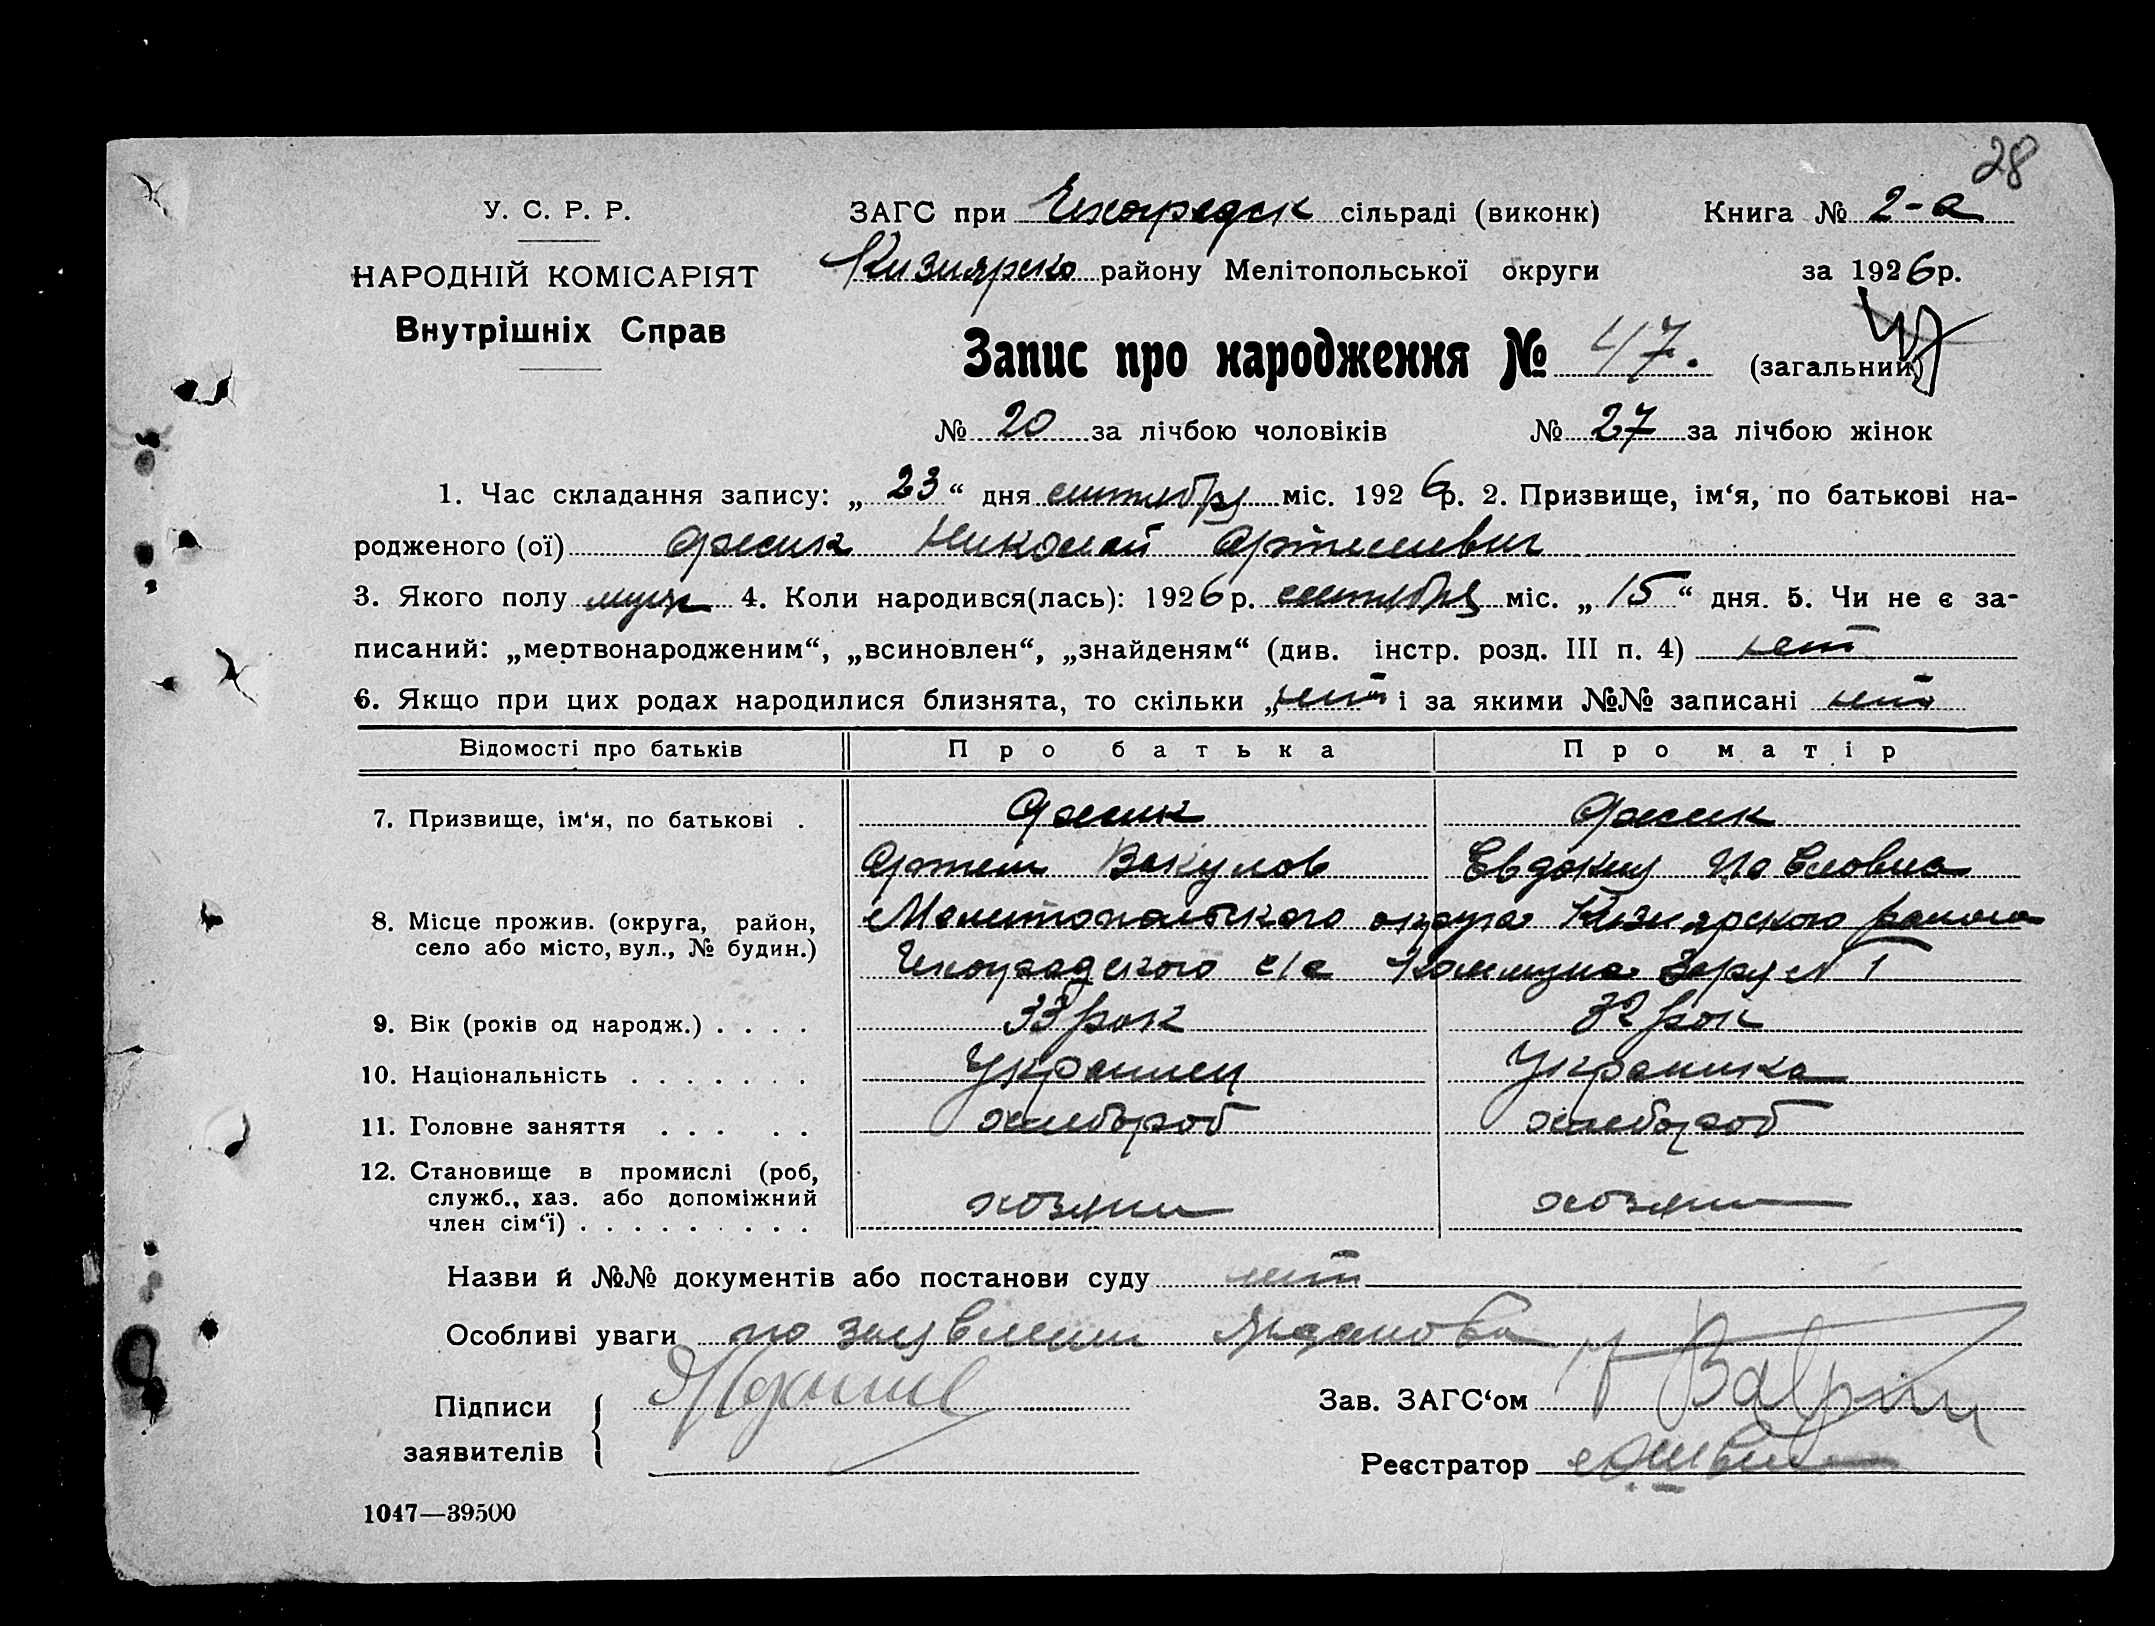 28
У. С. Р. Р.
НАРОДНІЙ КОМІСАРІЯТ
Внутрішніх Справ
ЗАГС при сільраді (виконк)
Кизиярско району Мелітопольської округи
Книга № 2-а
за 1926 р.
Запис про народження № 47. (загальний)
47
№ 20 за лічбою чоловіків № 27 за лічбою жінок
1. Час складання запису: „ 23 “ дня сентября міс. 1926 р. 2. Призвище, ім‘я, по батькові на-
родженого (ої) Николай Артемевич
3. Якого полу муж 4. Коли народився(лась): 1926 р. сентября міс. „ 15 “ дня. 5. Чи не є за-
писаний: „мертвонародженим“, „всиновлен“, „знайденям“ (див. інстр. розд. III п. 4) нет
6. Якщо при цих родах народилися близнята, то скільки „ нет “ і за якими №№ записані нет
Відомості про батьків Про батька Про матір
7. Призвище, ім‘я, по батькові .
Артем Вакулов Евдокия Павловна
8. Місце прожив. (округа, район,
село або місто, вул., № будин.)
Мелитопольского округа Кизиярского района
с/с Коммуна Заря N 1
9. Вік (років од народж.) . . . . 33 рок 32 рок
10. Національність . . . . . . . Украинец Украинка
11. Головне заняття . . . . . хлебороб хлебороб
12. Становище в промислі (роб,
служб., хаз. або допоміжний
член сім‘ї) . . . . . . . . . хозяин хозяин
Назви й №№ документів або постанови суду нет
Особливі уваги по заявлении
Підписи
заявителів
Зав. ЗАГС‘ом
Реєстратор
1047—39500